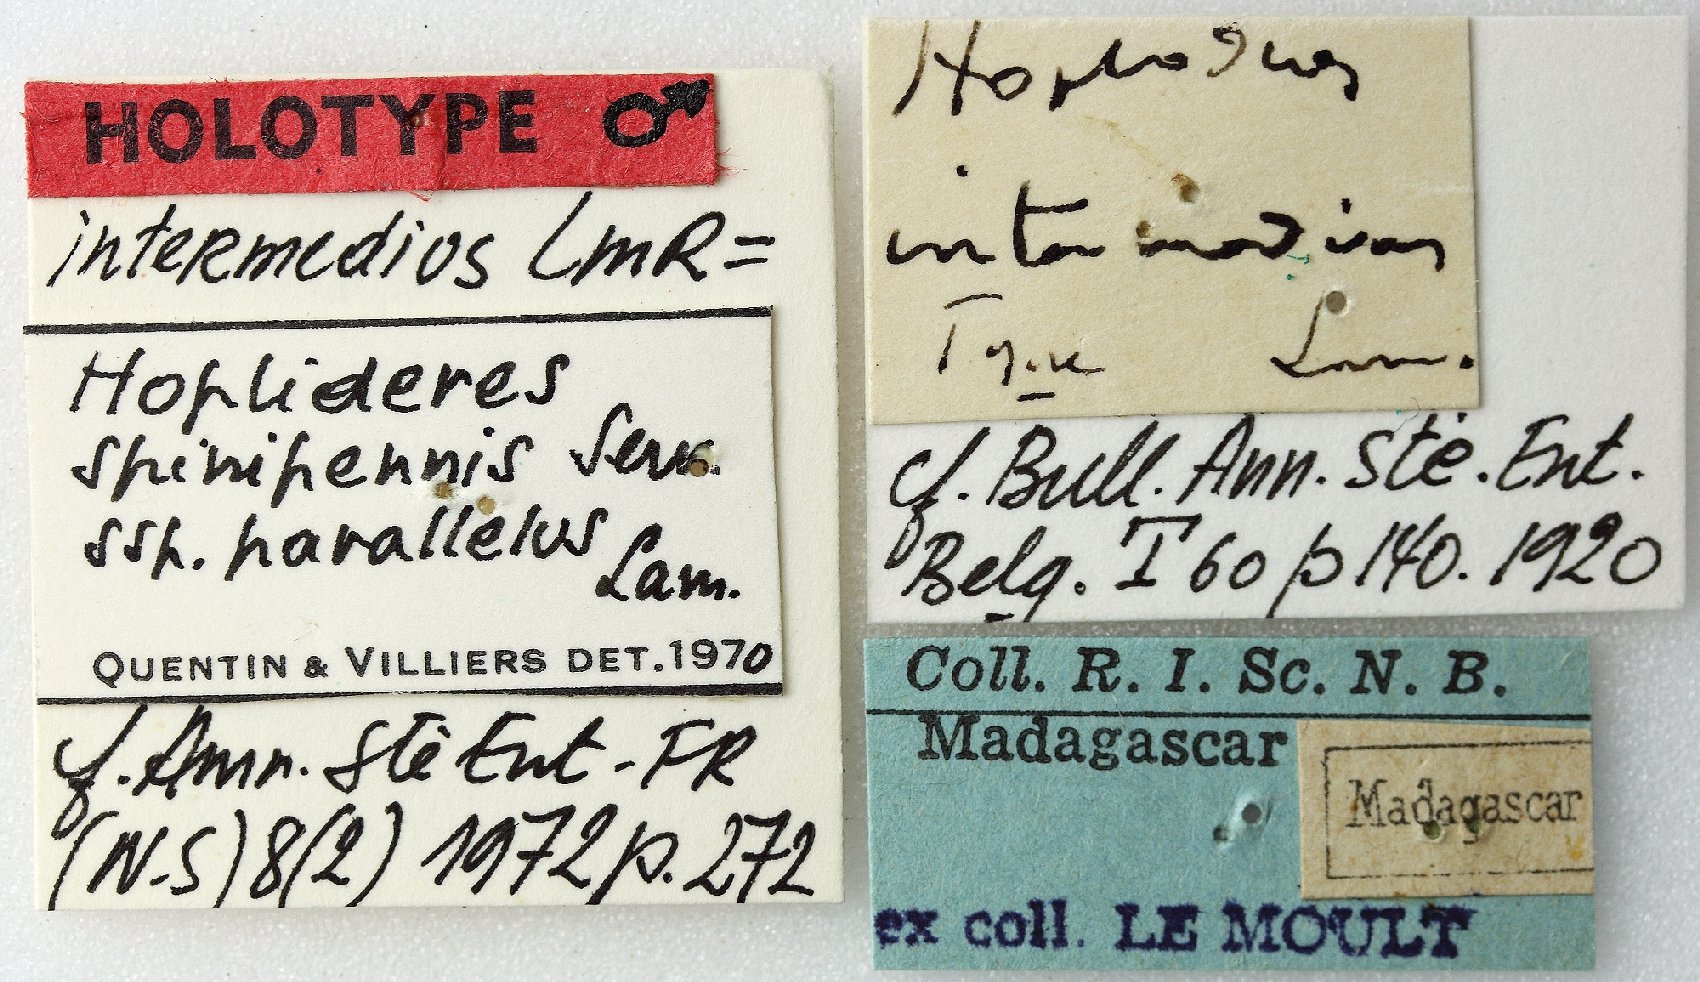 HOLOTYPE ♂
intermedius LmR =
Hoplideres
spinipennis Serv.
ssp. parallelus
Lam.
QUENTIN & VILLIERS DET. 1970
cf. Ann. Sté Ent. FR
(N.S) 8(2) 1972 p. 272
Hoplideres
intermedius
Type Lam.
cf. Bull. Ann. Sté. Ent.
Belg. T 60 p 140. 1920
Coll. R. I. Sc. N. B.
Madagascar
Madagascar
ex coll. LE MOULT